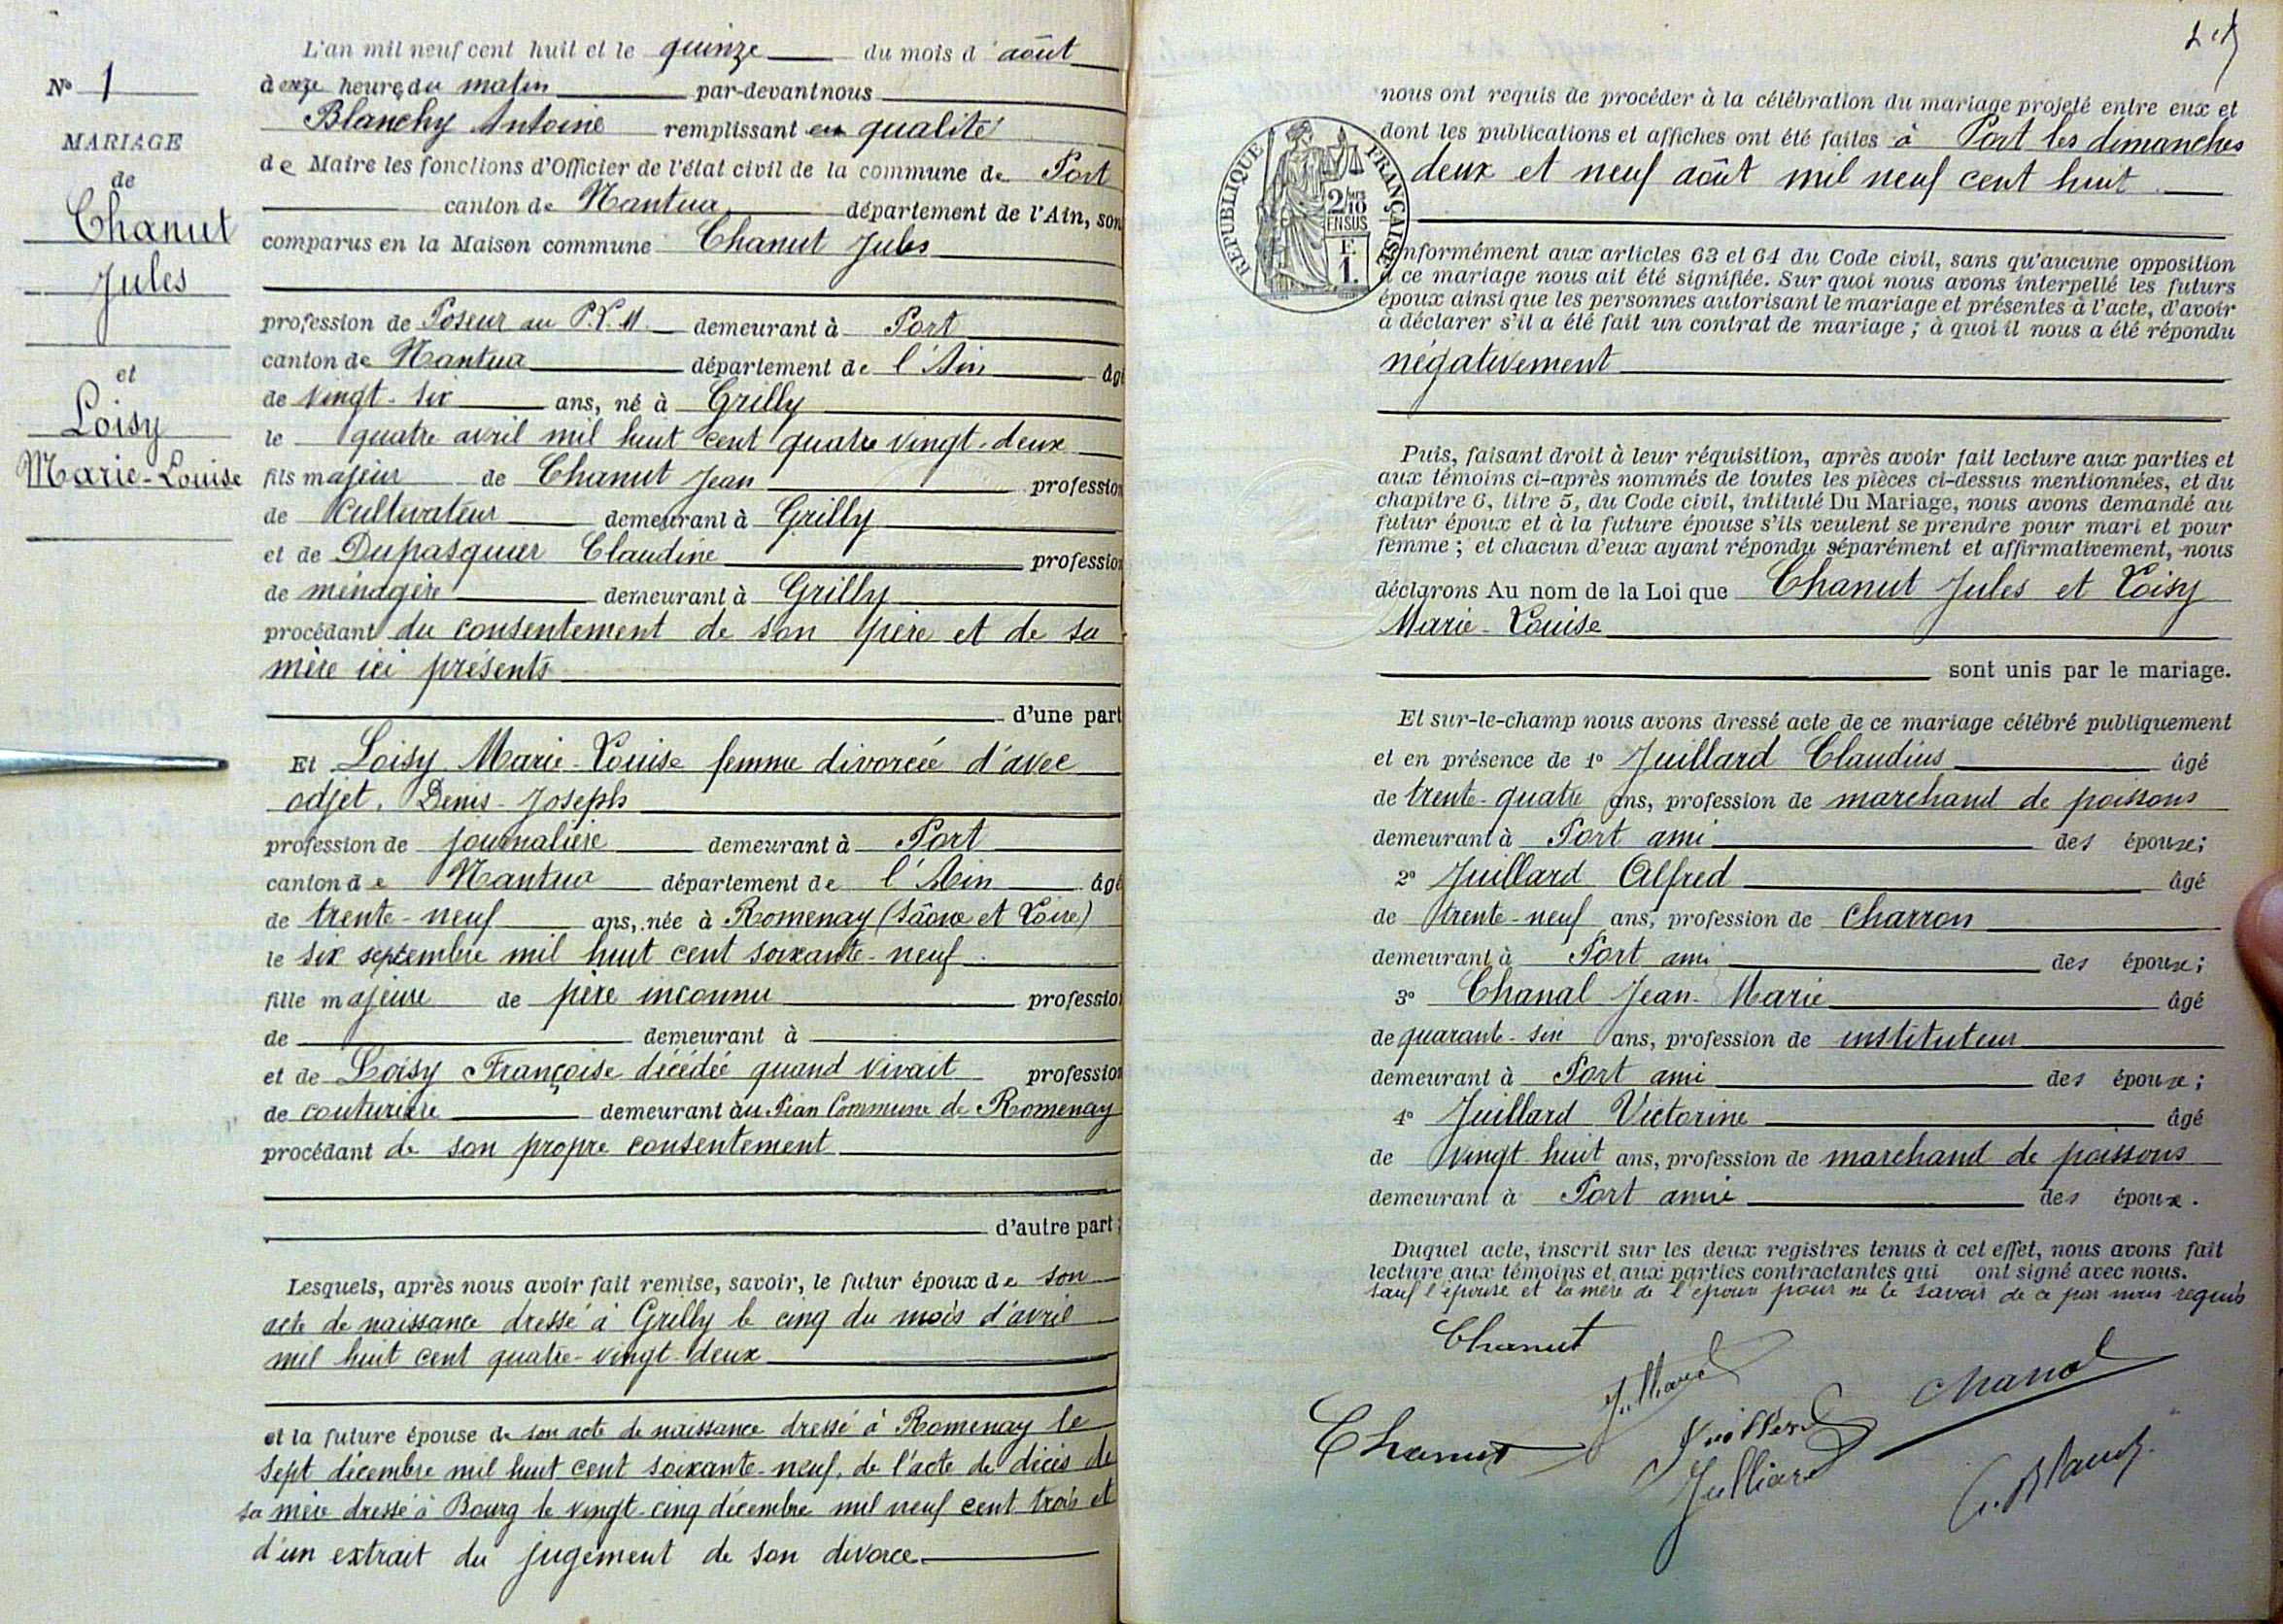 N° 1
MARIAGE
de
Chanut
Jules
et
Loisy
Marie-Louise
L'an mil neuf cent huit et le quinze du mois d'août
à onze heures du matin par-devant nous
Blanchy Antoine remplissant en qualité
de Maire les fonctions d'Officier de l'état civil de la commune de Port
canton de Nantua département de l'Ain, son
comparus en la Maison commune Chanut Jules
profession de Poseur au P.L.M. demeurant à Port
canton de Nantua département de l'Ain âgé
de vingt-six ans, né à Grilly
le quatre avril mil huit cent quatre vingt-deux
fils majeur de Chanut Jean profession
de cultivateur demeurant à Grilly
et de Dupasquier Claudine profession
de ménagère demeurant à Grilly
procédant du consentement de son père et de sa
mère ici présents
d'une part
Et Loisy Marie-Louise femme divorcée d'avec
odjet, Denis-Joseph
profession de journalière demeurant à Port
canton de Nantua département de l'Ain âgé
de trente-neuf ans, née à Romenay (Sâone et Loire)
le six septembre mil huit cent soixante-neuf
fille majeure de père inconnu profession
de demeurant à
et de Loisy Françoise décédée quand vivait profession
de couturière demeurant au Pian Commune de Romenay
procédant de son propre consentement
d'autre part;
Lesquels, après nous avoir fait remise, savoir, le futur époux de son
acte de naissance dressé à Grilly le cinq du mois d'avril
mil huit cent quatre-vingt-deux
et la future épouse de son acte de naissance dressé à Romenay le
sept décembre mil huit cent soixante-neuf, de l'acte de décès de
sa mère dressé à Bourg le vingt-cinq décembre mil neuf cent trois et
d'un extrait du jugement de son divorce
nous ont requis de procéder à la célébration du mariage projeté entre eux et
dont les publications et affiches ont été faites à Port les dimanches
deux et neuf août mil neuf cent huit
REPUBLIQUE FRANÇAISE
2/10
EN SUS
E
1.
onformément aux articles 63 et 64 du Code civil, sans qu'aucune opposition
à ce mariage nous ait été signifiée. Sur quoi nous avons interpellé les futurs
époux ainsi que les personnes autorisant le mariage et présentes à l'acte, d'avoir
à déclarer s'il a été fait un contrat de mariage ; à quoi il nous a été répondu
négativement
Puis, faisant droit à leur réquisition, après avoir fait lecture aux parties et
aux témoins ci-après nommés de toutes les pièces ci-dessus mentionnées, et du
chapitre 6, titre 5, du Code civil, intitulé Du Mariage, nous avons demandé au
futur époux et à la future épouse s'ils veulent se prendre pour mari et pour
femme ; et chacun d'eux ayant répondu séparément et affirmativement, nous
déclarons Au nom de la Loi que Chanut Jules et Loisy
Marie-Louise
sont unis par le mariage.
Et sur-le-champ nous avons dressé acte de ce mariage célébré publiquement
et en présence de 1° Juillard Claudius âgé
de trente-quatre ans, profession de marchand de poissons
demeurant à Port ami des époux;
2° Juillard Alfred âgé
de trente-neuf ans, profession de charron
demeurant à Port ami des époux;
3° Chanal Jean-Marie âgé
de quarante-six ans, profession de instituteur
demeurant à Port ami des époux;
4° Juillard Victorine âgé
de vingt huit ans, profession de marchand de poissons
demeurant à Port amie des époux.
Duquel acte, inscrit sur les deux registres tenus à cet effet, nous avons fait
lecture aux témoins et aux parties contractantes qui ont signé avec nous.
sauf l'épouse et la mère de l'époux pour ne le savoir de ce par nous requis
Chanut
Juillard
Chanal
Chanut
Juillard
Juillard
A. Blanchy